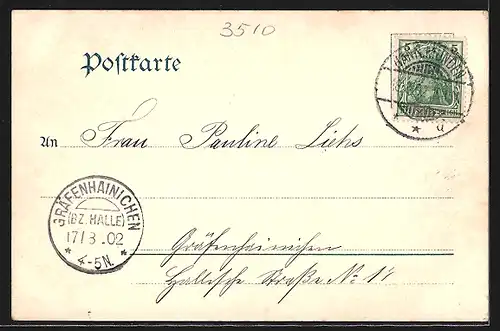 3510
Postkarte
5 5
An Frau Pauline Liehs
GRÄFENHAINICHEN
(BZ. HALLE)
17/3.02
* 4-5N. *
Gräfenhainichen
Hallische Straße No 14